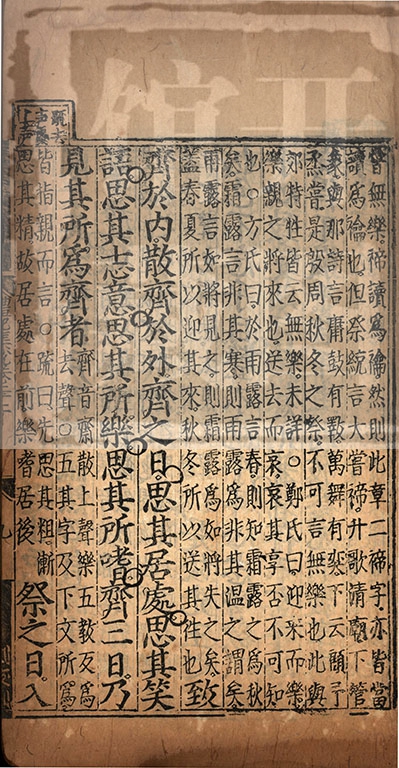 嘗無樂禘讀為禴然則此章二禘字亦皆當
讀為禴也但祭統言大嘗禘升歌清廟下管
象與那詩言庸鼓有斁萬舞有奕下云顧予
烝嘗是殷周秋冬之祭不可言無樂也此與
郊特牲皆云無樂未詳○鄭氏曰迎來而樂
樂親之將來也送去而哀哀其享否不可知
也○方氏曰於雨露言春則知霜露之為秋
矣霜露言非其寒則雨露為非其温之謂矣
雨露言如將見之則霜露為如將失之矣
蓋春夏所以迎其來秋冬所以送其往也致
齊於内散齊於外齊之日思其居處思其笑
語思其志意思其所樂思其所嗜齊三日乃
見其所為齊者齊音齋散上聲樂五教反為
去聲○五其字及下文所為
皆指親而言○疏曰先思其粗漸
思其精故居處在前樂嗜居後祭之日入